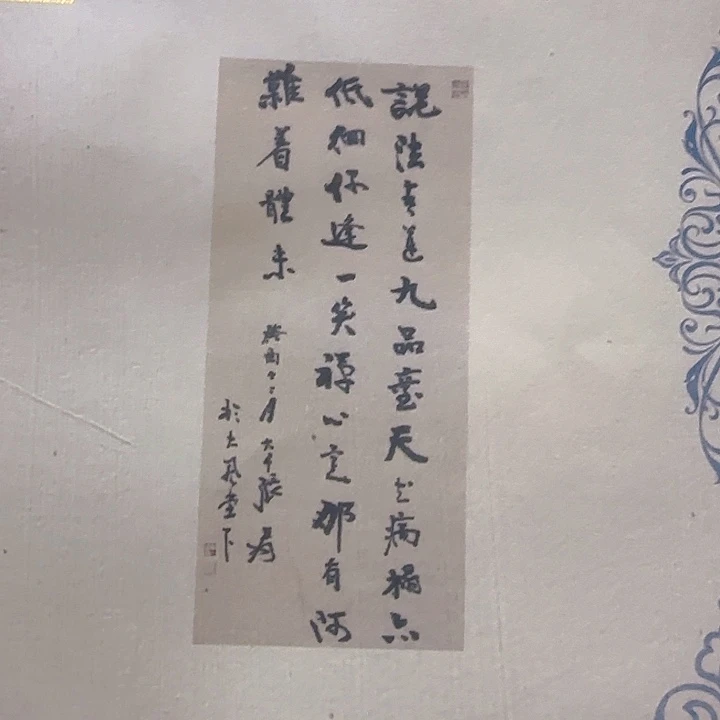 說青蓮九品臺天病榻亦
低徊逢一笑禪心定那有阿
難着體來
癸酉二月大千張爰
於大風堂下